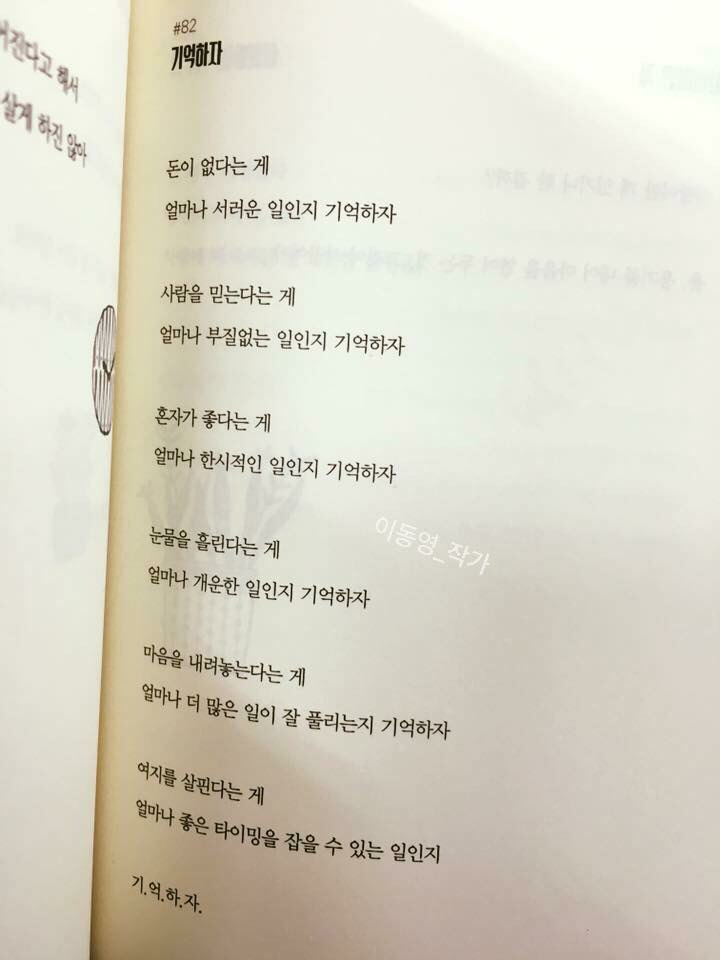 어진다고 해서
살게 하진 않아
#82
기억하자
돈이 없다는 게
얼마나 서러운 일인지 기억하자
사람을 믿는다는 게
얼마나 부질없는 일인지 기억하자
혼자가 좋다는 게
얼마나 한시적인 일인지 기억하자
눈물을 흘린다는 게
얼마나 개운한 일인지 기억하자
마음을 내려놓는다는 게
얼마나 더 많은 일이 잘 풀리는지 기억하자
여지를 살핀다는 게
얼마나 좋은 타이밍을 잡을 수 있는 일인지
기.억.하.자.
이동영_작가